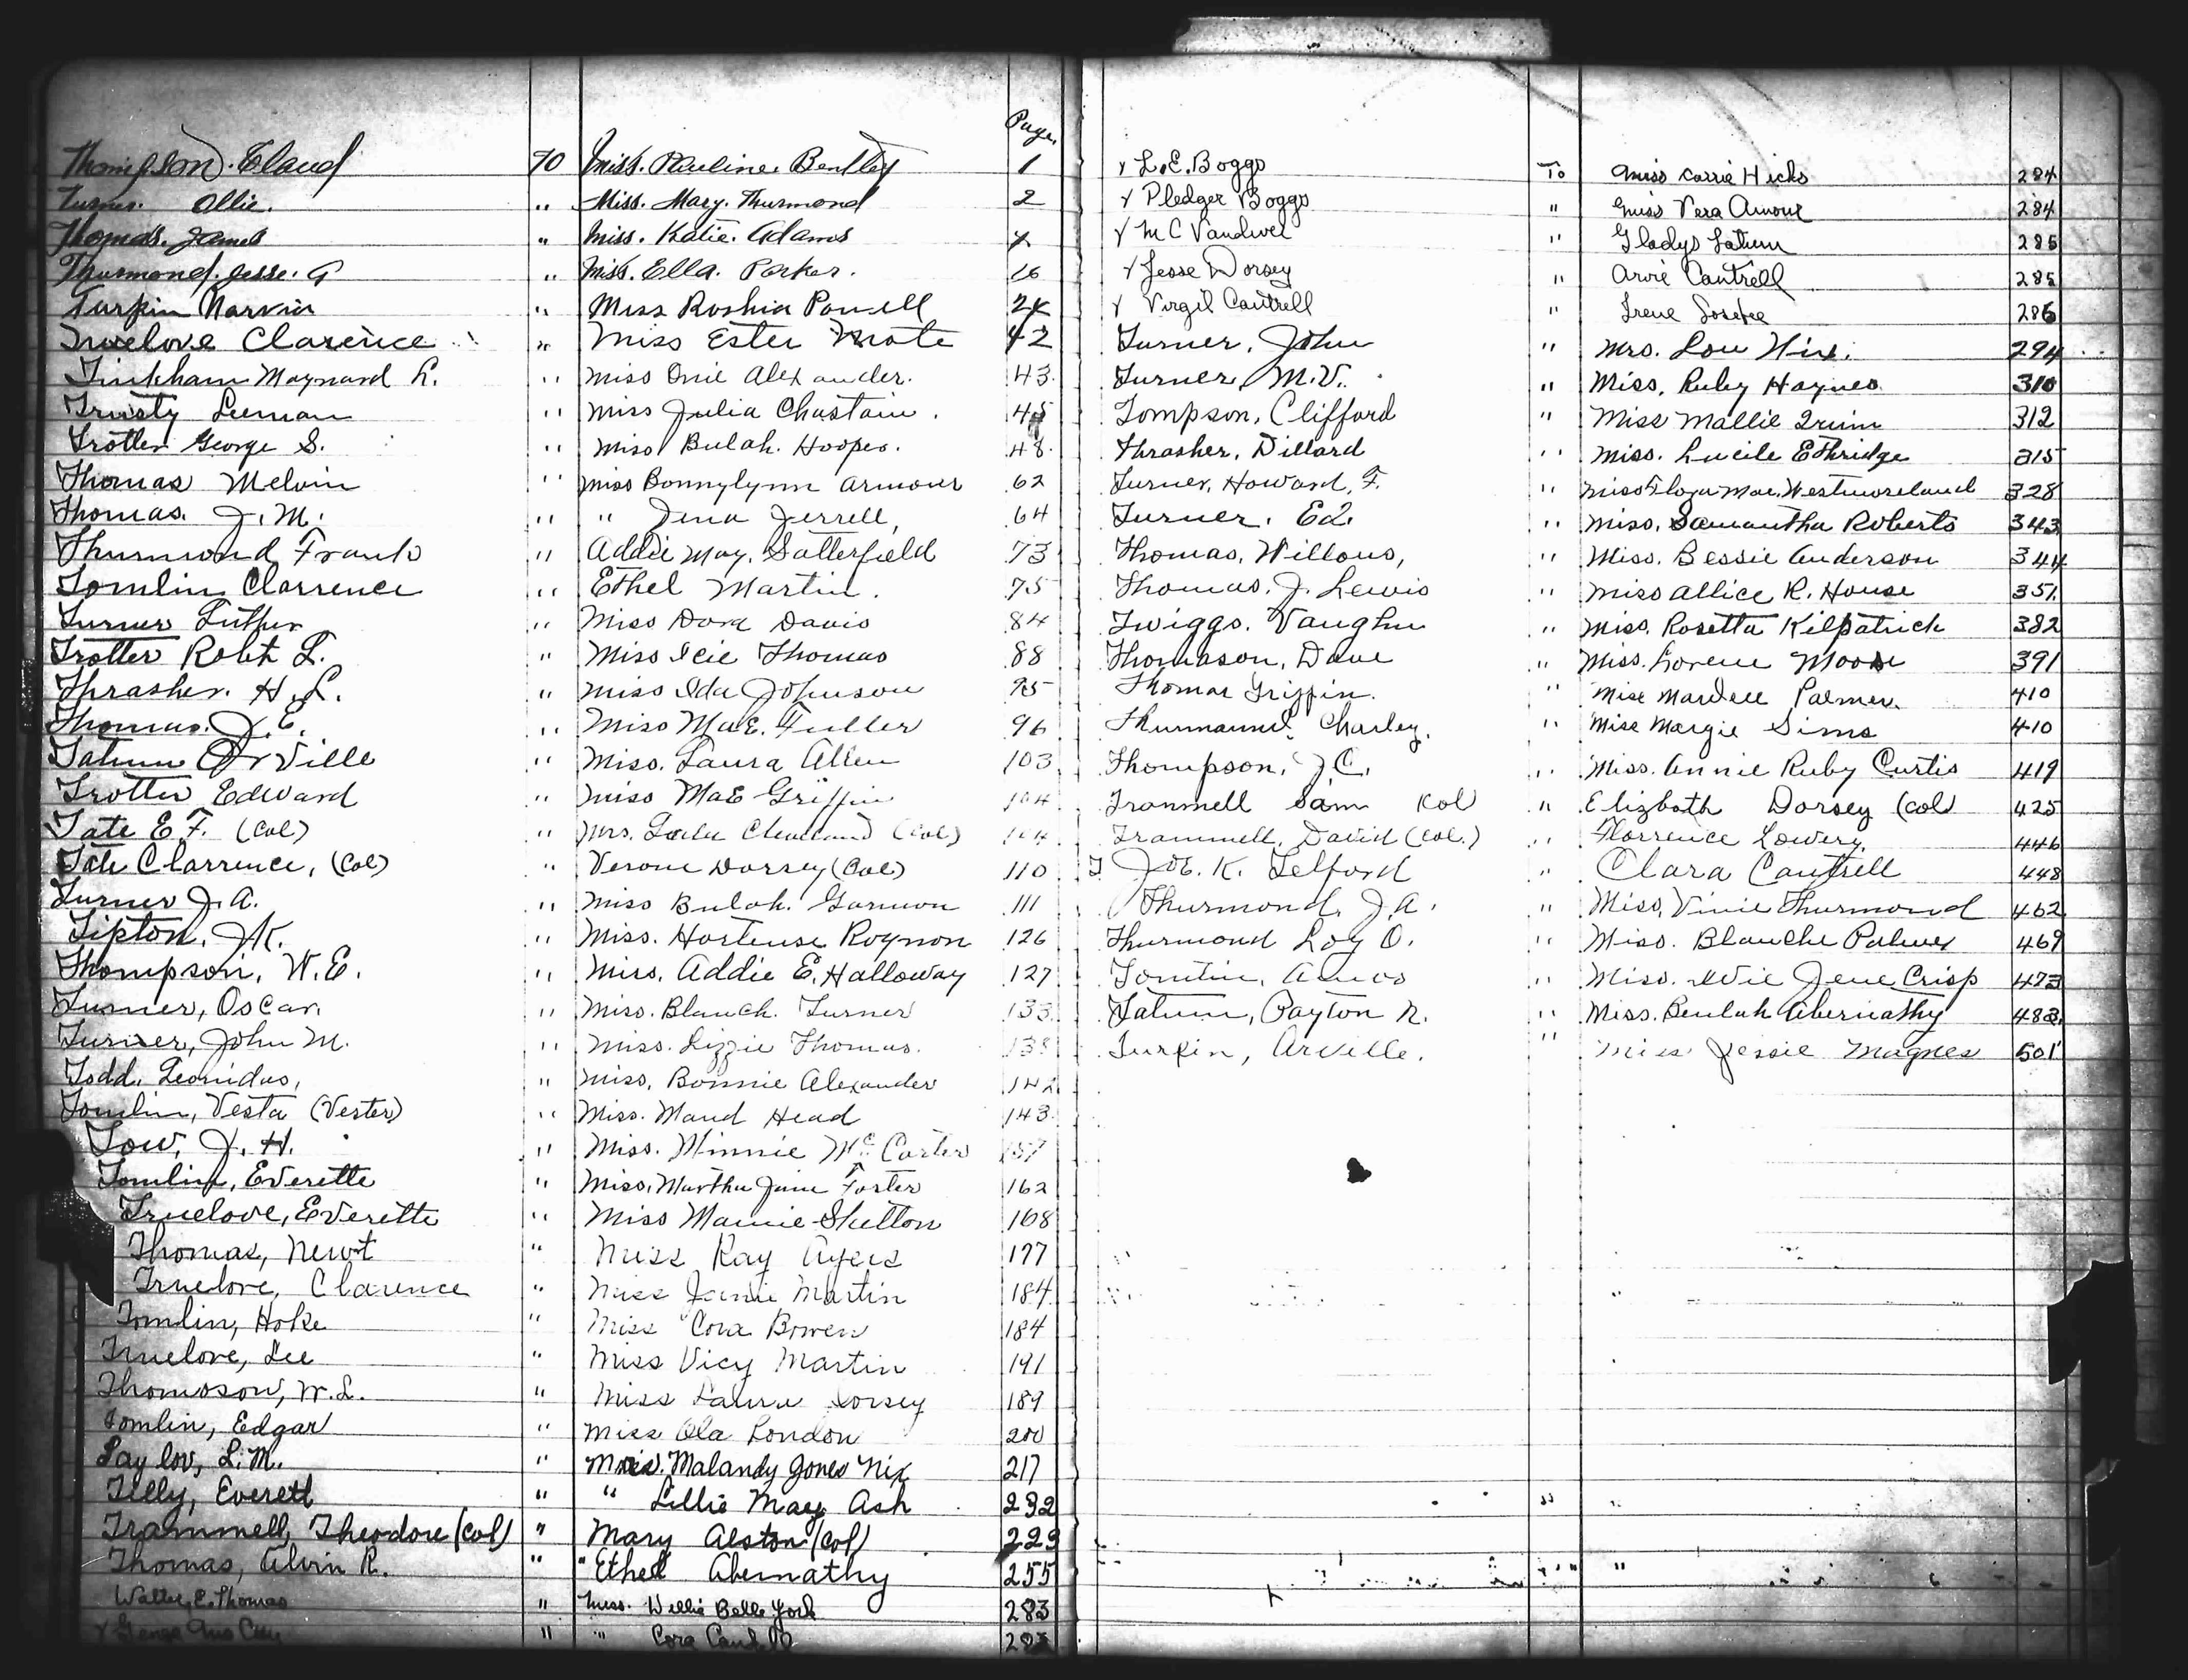 Page
Thompson. Claud TO Miss. Pauline. Bentley 1
Turner. Ollie. " Miss. Mary. Thurmond 2
Thomas. James " Miss. Katie. Adams 4
Thurmond. Jesse. G " Miss. Ella. Parker. 16
Turpin Marvin " Miss Roshia Powell 24
Truelove Clarence " Miss Ester Mote 42
Tinkham Maynard L. " Miss Onie Alexander. 43
Trusty Leeman " Miss Julia Chastain. 45
Trotter George S. " Miss Bulah. Hooper. 48
Thomas Melvin " Miss Bonnylynn Armour 62
Thomas. J. M. " " Dena Jerrell, 64
Thurmond Frank " Addie May. Satterfield 73
Tomlin Clarrence " Ethel Martin. 75
Turner Luther " Miss Dora Davis 84
Trotter Robt L. " Miss Icie Thomas 88
Thrasher. H. L. " Miss Ida Johnson 95
Thomas. J. E. " Miss Ma E. Fuller 96
Tatum Orville " Miss. Laura Allen 103
Trotter Edward " Miss MaE Griffin 104
Tate E. F. (Col) " Mrs. Lula Cleveland (Col) 104
Tate Clarrence, (Col) " Verone Dorsey (Col) 110
Turner J. A. " Miss Bulah. Garmon 111
Tipton, J.K. " Miss. Hortense Roynon 126
Thompson, W. E. " Miss. Addie E. Halloway 127
Turner, Oscar. " Miss. Blanch. Turner 133
Turner, John M. " Miss. Lizzie Thomas. 138
Todd, Leonidas, " Miss. Bonnie Alexander 142
Tomlin, Vesta (Vester) " Miss. Maud Head 143
Tow, J. H. " Miss. Minnie Mc Carter 157
Tomlin, Everette " Miss. Martha Jane Foster 162
Truelove, Everette " Miss Mamie Shelton 168
Thomas, Newt " Miss Kay Ayers 177
Truelove, Clarence " Miss Janie Martin 184
Tomlin, Hoke " Miss Cora Bowen 184
Truelove, Lee " Miss Vicy Martin 191
Thomason, W. L. " Miss Laura Dorsey 189
Tomlin, Edgar " Miss Ola London 200
Taylor, L. M. " Mrs. Malandy Jones Nix 217
Tilly, Everett " " Lillie May Ash 232
Trammell, Theodore (Col) " Mary Alston (Col) 229
Thomas, Alvin R. " " Ethel Abernathy 255
Walter E. Thomas " Miss. Willie Belle York 283
" " Cora
x L. E. Boggs To Miss Carrie Hicks 284
x Pledger Boggs " Miss Vera Amour 284
x M C Vandiver " Gladys Tatum 285
x Jesse Dorsey " Arvie Cantrell 285
x Virgil Cantrell " Irene 286
Turner, John " Mrs. Lou Hix. 294
Turner, M. V. " Miss. Ruby Haynes 310
Tompson, Clifford " Miss Mallie 312
Thrasher, Dillard " Miss. Lucile Ethridge 315
Turner, Howard, F. " Miss Flora Mae. Westmoreland 328
Turner, Ed. " Miss. Samantha Roberts 343
Thomas, Willous, " Miss. Bessie Anderson 344
Thomas, J. Lewis " Miss Allice R. House 351
Twiggs. Vaughn " Miss. Rosetta Kilpatrick 382
Thomason, Dave " Miss. Lorene Moore 391
Thomas Griffin. " Miss Mardell Palmer. 410
Thurmannd, Charley. " Miss Margie Sims 410
Thompson, J. C. " Miss. Annie Ruby Curtis 419
Trammell Sam Col " Elizbath Dorsey (Col) 425
Trammell, David (Col.) " Florrence Lowery, 446
Joe. K. Telford " Clara Cantrell 448
Thurmond, J. A. " Miss, Vinie Thurmond 462
Thurmond Loy O. " Miss. Blanche Palmer 469
Tomlin, Amos " Miss. Evie Jene Crisp 473
Tatum, Payton N. " Miss. Beulah Abernathy 483
Turpin, Arville. " Miss Jessie Magnes 501